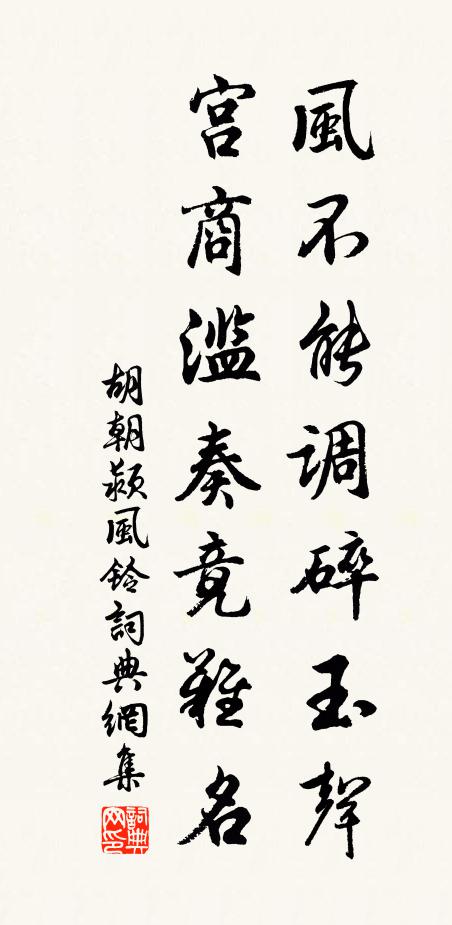 風不能調碎玉聲
宮商濫奏竟難名
胡朝蘋風鈴詞典網集
詞典网印